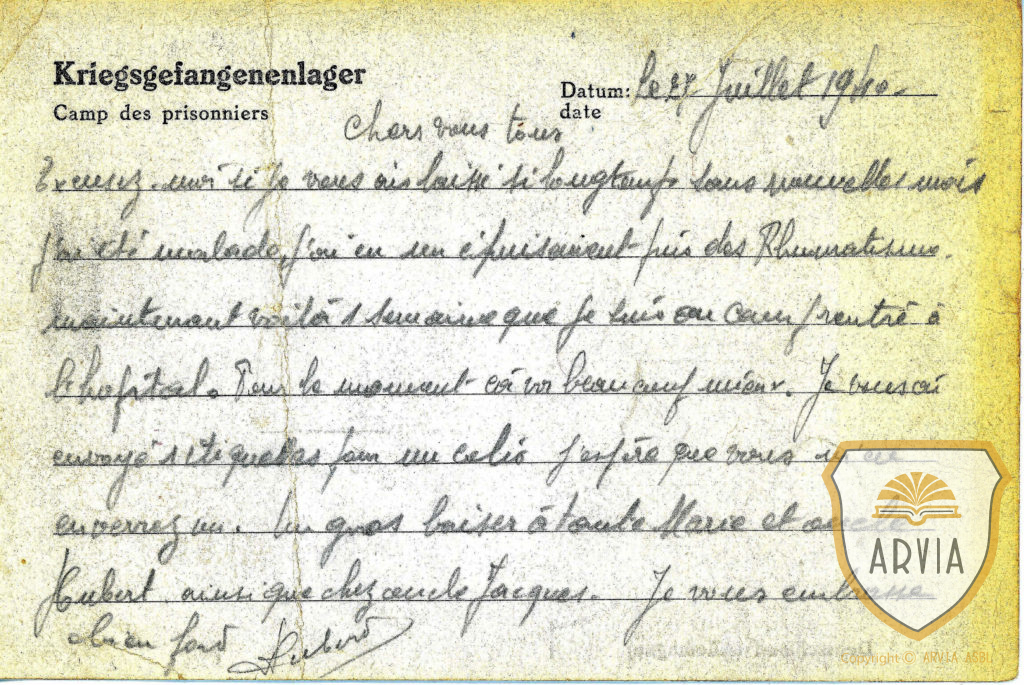 Kriegsgefangenenlager
Camp des prisonniers
Datum: le 27 Juillet 1940.
date
Chers vous tous
Excusez-moi si je vous ais laissé si longtemps sans nouvelles mais
j'ai été malade, j'ai eu un épuisement puis des Rhumatisme.
maintenant voilà 1 semaine que je suis au camp rentré à
l'hopital. Pour le moment ça va beaucoup mieux. Je vous ai
envoyé 1 étiquettes pour un colis j'espère que vous
enverrez un. Un gros baiser à tante Marie et oncle
Hubert ainsi que chez oncle Jacques. Je vous embrasse
bien fort
ARVIA
copyright © ARVIA ASBL